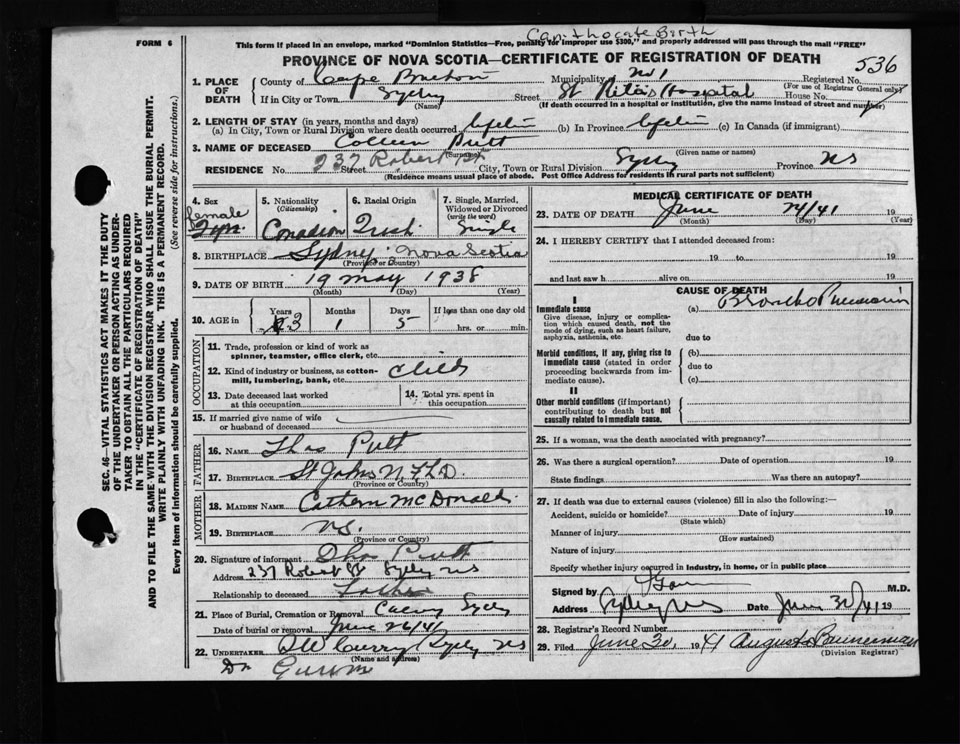 Can't locate Birth
FORM 6
This form if placed in an envelope, marked "Dominion Statistics—Free, penalty for improper use $300," and properly addressed will pass through the mail "FREE"
PROVINCE OF NOVA SCOTIA—CERTIFICATE OF REGISTRATION OF DEATH
536
1. PLACE OF DEATH
County of Cape Breton Municipality No 1 Registered No.
(For use of Registrar General only)
If in City or Town Sydney Street St Rita's Hospital House No.
(Name) (If death occurred in a hospital or institution, give the name instead of street and number)
2. LENGTH OF STAY (in years, months and days)
(a) In City, Town or Rural Division where death occurred Lifetime (b) In Province Lifetime (c) In Canada (if immigrant)
3. NAME OF DECEASED Colleen Prett
(Surname) (Given name or names)
RESIDENCE No. 237 Robert St Street City, Town or Rural Division Sydney Province NS
(Residence means usual place of abode. Post Office Address for residents in rural parts not sufficient)
4. Sex female
5. Nationality (Citizenship) Canadian
6. Racial Origin Irish
7. Single, Married, Widowed or Divorced (write the word) Single
8. BIRTHPLACE Sydney Nova Scotia
(Province or Country)
9. DATE OF BIRTH 19 May 1938
(Month) (Day) (Year)
10. AGE in Years Months Days If less than one day old
3 1 5 hrs. or min.
OCCUPATION
11. Trade, profession or kind of work as spinner, teamster, office clerk, etc
12. Kind of industry or business, as cotton-mill, lumbering, bank, etc. child
13. Date deceased last worked at this occupation
14. Total yrs. spent in this occupation
15. If married give name of wife or husband of deceased
FATHER
16. NAME Thos Prett
17. BIRTHPLACE St Johns N.F.L.D.
(Province or Country)
MOTHER
18. MAIDEN NAME Cathern McDonald
19. BIRTHPLACE N.S.
(Province or Country)
20. Signature of informant Thos Prett
Address 237 Robert St Sydney NS
Relationship to deceased Father
21. Place of Burial, Cremation or Removal Sydney
Date of burial or removal June 26/41
22. UNDERTAKER DW Curry Sydney NS
(Name and address)
Dr
MEDICAL CERTIFICATE OF DEATH
23. DATE OF DEATH June 24/41 19
(Month) (Day) (Year)
24. I HEREBY CERTIFY that I attended deceased from:
19 to 19
and last saw h alive on 19
CAUSE OF DEATH
I
Immediate cause
Give disease, injury or complication which caused death, not the mode of dying, such as heart failure, asphyxia, asthenia, etc.
(a) Broncho Pneumonia
due to
Morbid conditions, if any, giving rise to immediate cause (stated in order proceeding backwards from immediate cause).
(b)
due to
(c)
II
Other morbid conditions (if important) contributing to death but not causally related to immediate cause.
25. If a woman, was the death associated with pregnancy?
26. Was there a surgical operation? Date of operation 19
State findings Was there an autopsy?
27. If death was due to external causes (violence) fill in also the following:—
Accident, suicide or homicide? Date of injury 19
(State which)
Manner of injury
(How sustained)
Nature of injury
Specify whether injury occurred in industry, in home, or in public place
Signed by M.D.
Address Sydney NS Date June 30/41 19
28. Registrar's Record Number
29. Filed June 30, 1941 Bannerman
(Division Registrar)
SEC. 46—VITAL STATISTICS ACT MAKES IT THE DUTY
OF THE UNDERTAKER OR PERSON ACTING AS UNDER-
TAKER TO OBTAIN ALL THE PARTICULARS REQUIRED
IN THE "CERTIFICATE OF REGISTRATION OF DEATH"
AND TO FILE THE SAME WITH THE DIVISION REGISTRAR WHO SHALL ISSUE THE BURIAL PERMIT.
WRITE PLAINLY WITH UNFADING INK. THIS IS A PERMANENT RECORD.
Every item of information should be carefully supplied. (See reverse side for instructions.)